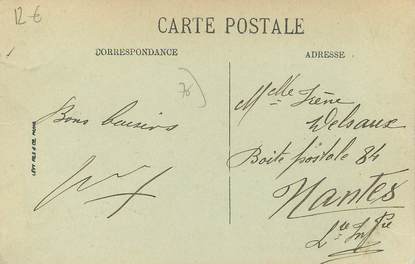 12 €
CARTE POSTALE
CORRESPONDANCE
ADRESSE
78
Bons baisers
LÉVY FILS & CIE, PARIS
Melle Irène
Delsaux
Boite postale 84
Nantes
Lre Infre